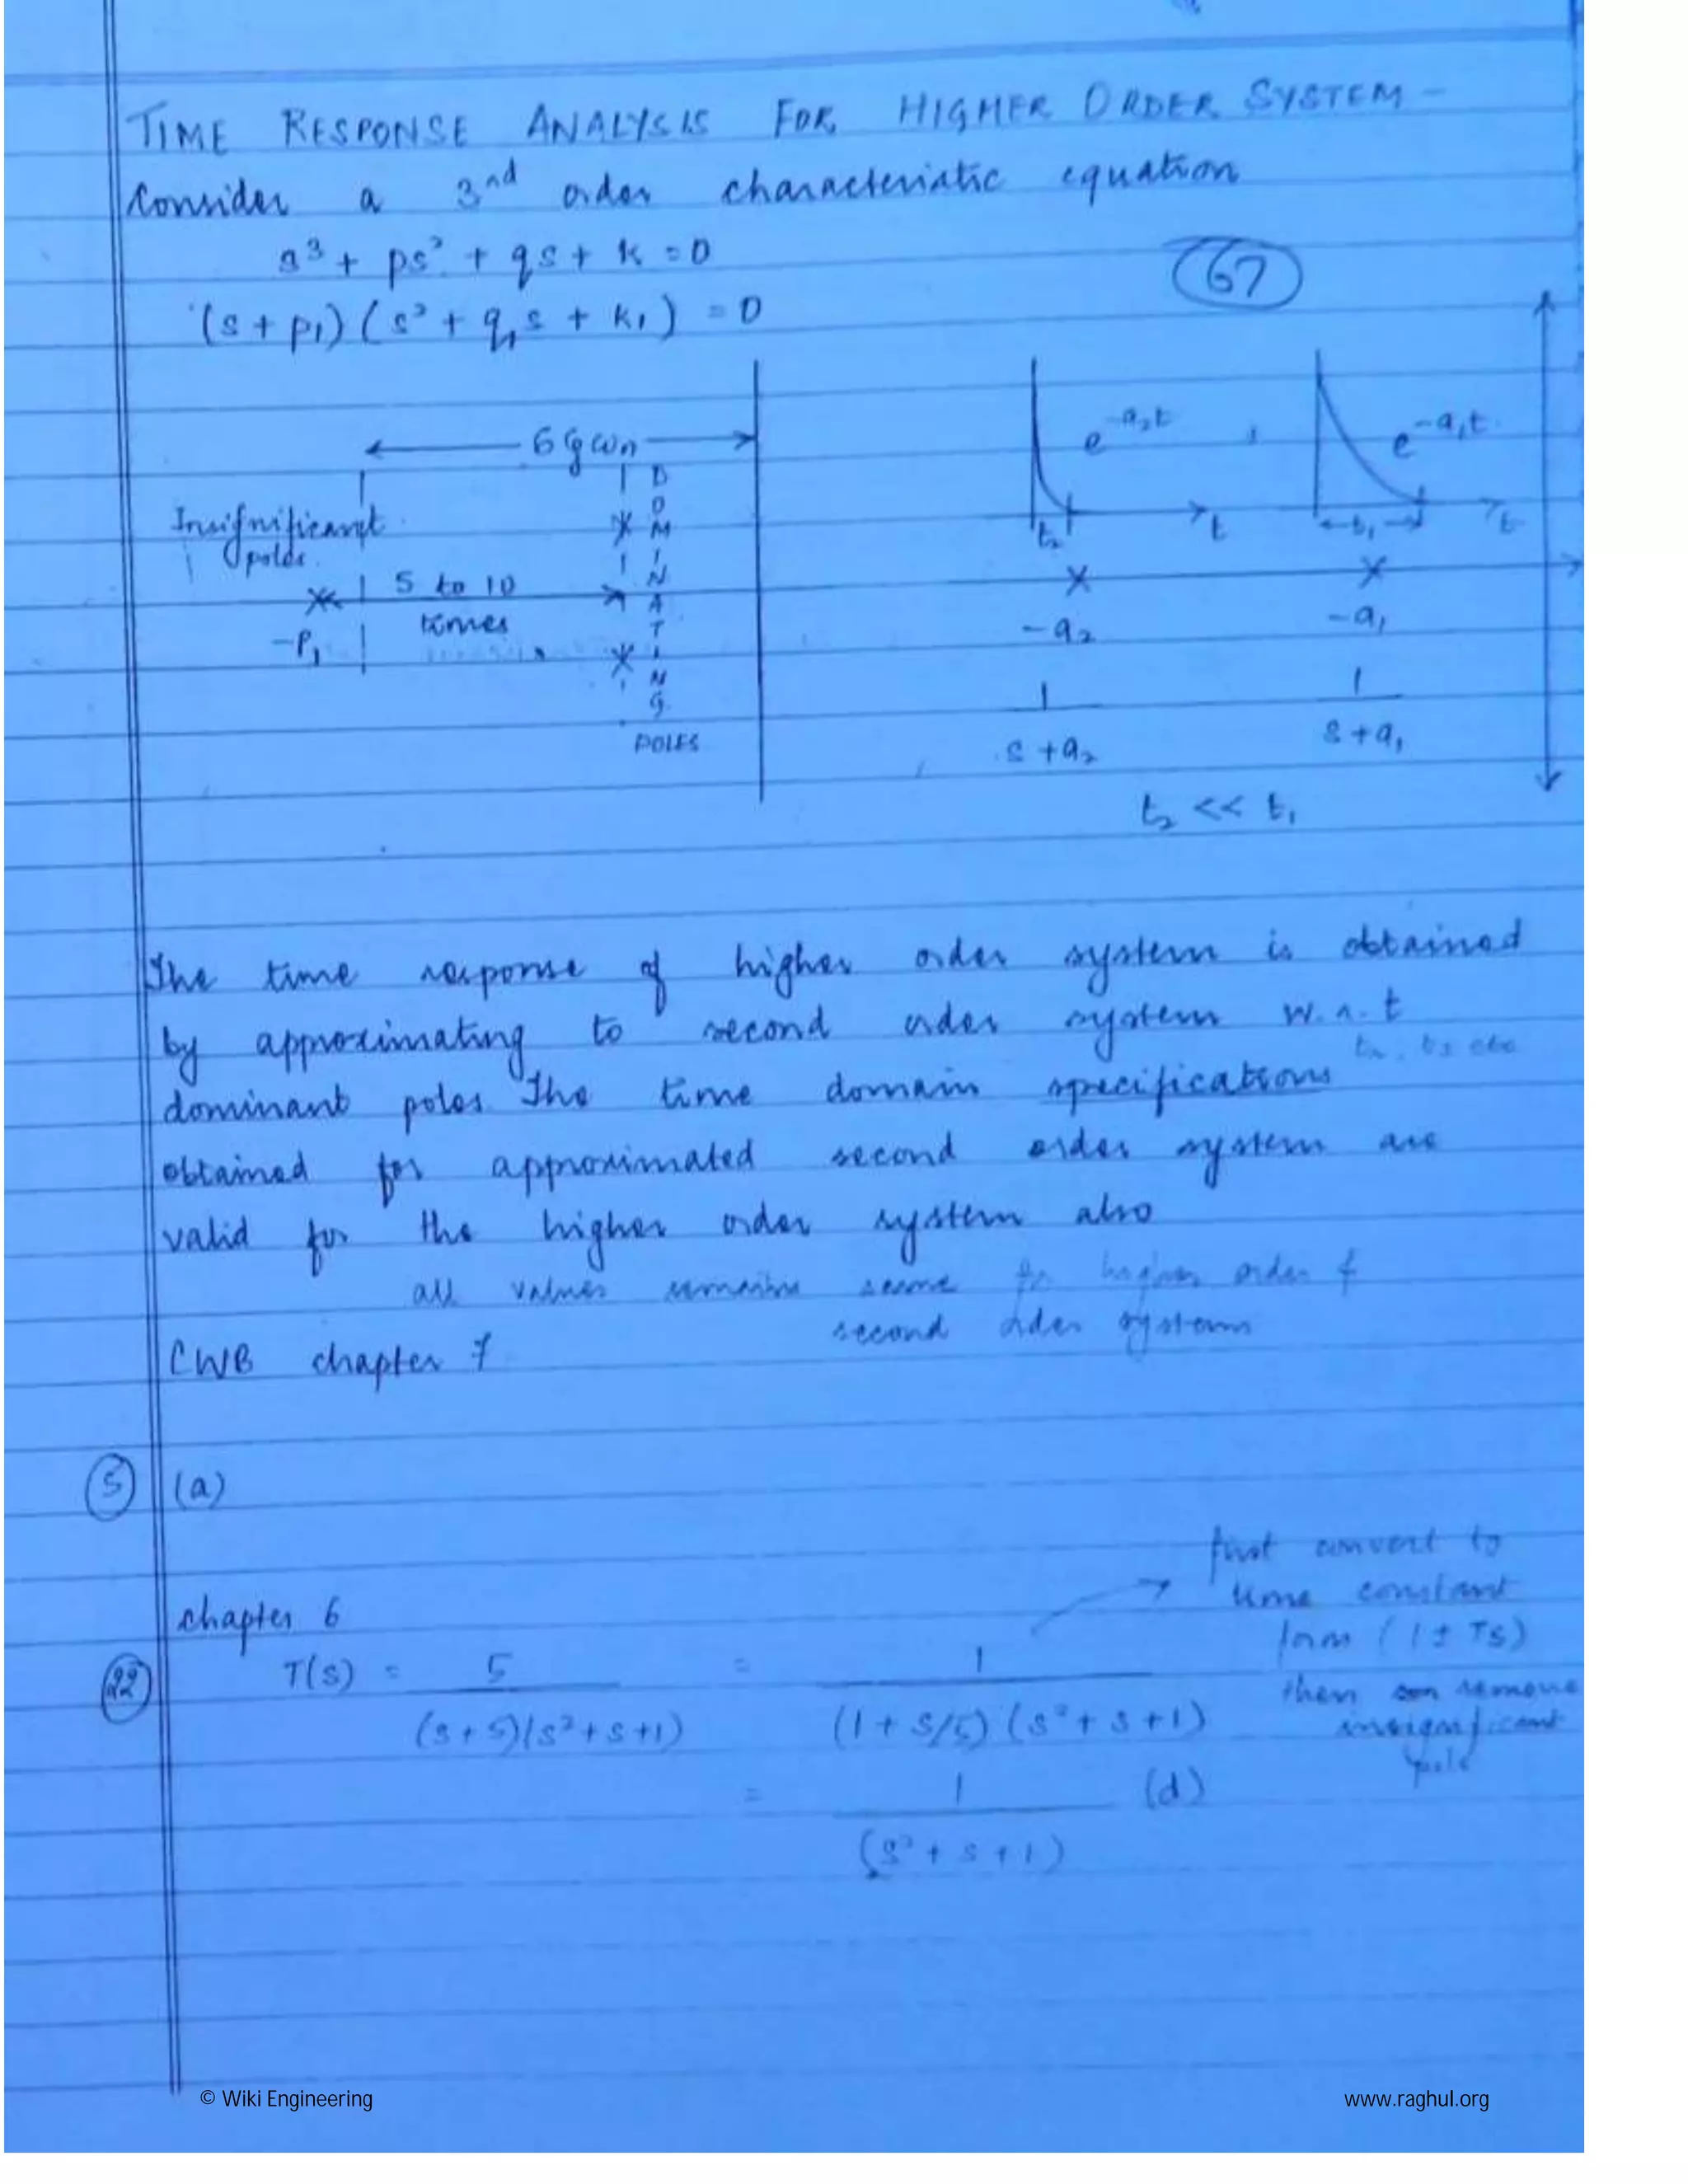 TIME RESPONSE ANALYSIS FOR HIGHER ORDER SYSTEM -
Consider a 3nd order characteristic equation
s³ + ps² + qs + k = 0
67
(s + p₁) (s² + q₁s + k₁) = 0
6ξωn
e^-a₂t
e^-a₁t
Insignificant
poles
DOMINATING
POLES
5 to 10
times
-P₁
t₂
t
t₁
t
-a₂
-a₁
1/(s + a₂)
1/(s + a₁)
t₂ << t₁
The time response of higher order system is obtained
by approximating to second order system w.r.t
dominant poles. The time domain specifications
obtained for approximated second order system are
valid for the higher order system also
all values remains same for higher order &
second order systems
CWB chapter 7
5 (a)
first convert to
time constant
form (1 ± TS)
then remove
insignificant
pole
chapter 6
22 T(s) = 5/((s + 5)(s² + s + 1)) = 1/((1 + s/5) (s² + s + 1))
= 1/(s² + s + 1) (d)
© Wiki Engineering
www.raghul.org